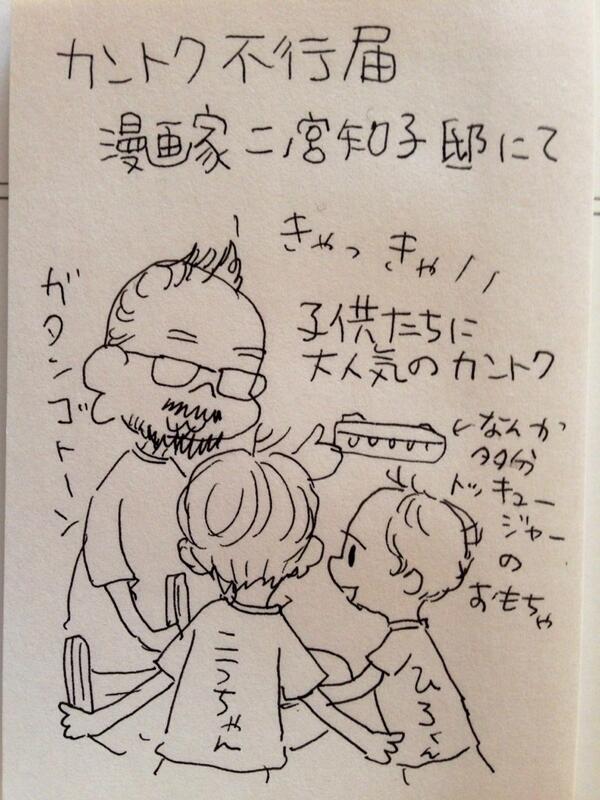 カントク不行届
漫画家二ノ宮知子邸にて
きゃっきゃ//
子供たちに
大人気のカントク
ガタンゴトーン
←なんか
多分
トッキュー
ジャー
の
おもちゃ
こうちゃん
ひろくん